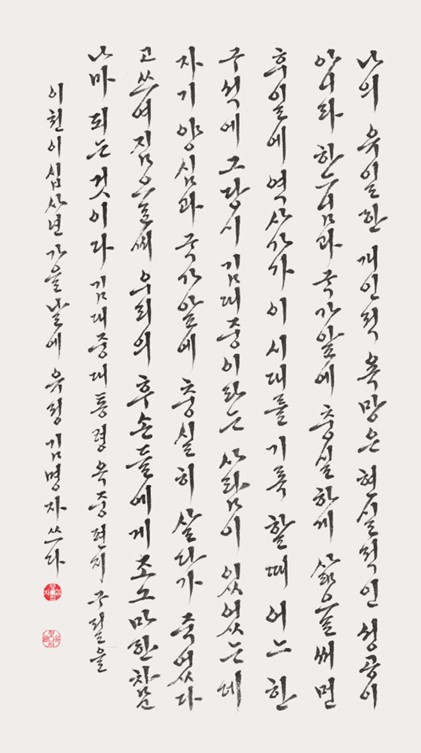 나의 유일한 개인적 욕망은 현실적인 성공이
아니라 하느님과 국가앞에 충실하게 삶으로써 먼
후일에 역사가가 이 시대를 기록 할때 어느 한
구석에 그당시 김대중이라는 사람이 있었는데
자기 양심과 국가앞에 충실히 살다가 죽었다
고 쓰여짐으로써 우리의 후손들에게 조그마한
나마 되는것이다 김대중대통령 옥중편지 구절을
이천이십사년 가을날에 유정 김명자 쓰다